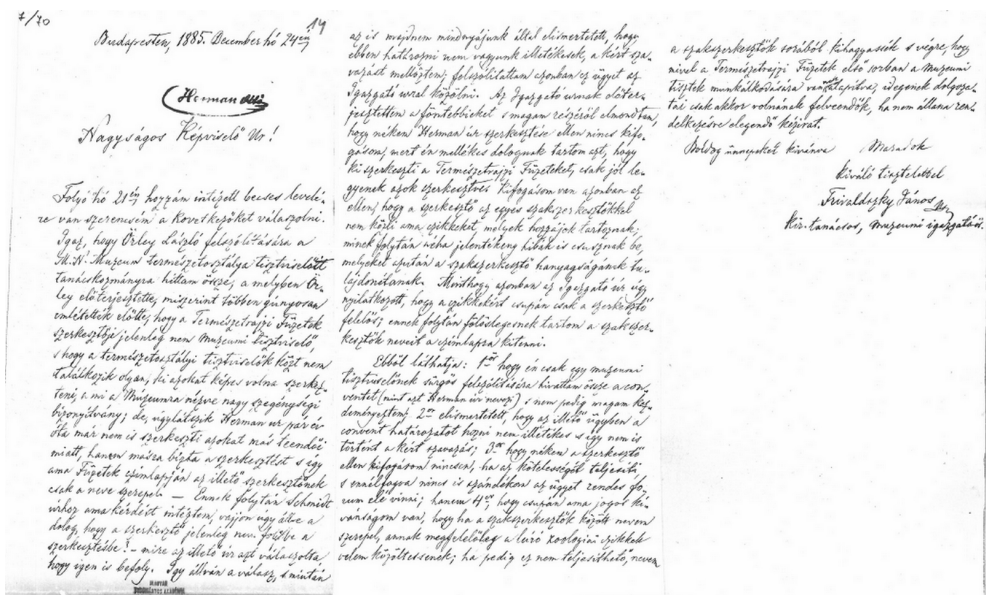 7/70
14
Budapesten, 1885. December hó 24én
Herman Ottó
Nagyságos Képviselő Ur!
Folyó hó 21én hozzám intézett becses levelé-
re van szerencsém a következőket válaszolni.
Igaz, hogy Örley László felszólítására a
M. N. Muzeum természetosztálya tisztviselőit
tanácskozmányra hittam össze, a melyben Ör-
ley előterjesztette, miszerint többen gúnyosan
említették előtte, hogy a Természetrajzi Füzetek
szerkesztője jelenleg nem Muzeumi tisztviselő,
s hogy a természetosztályi tisztviselők közt nem
találkozik olyan, ki azokat képes volna szerkesz-
teni, a mi a Muzeumra nézve nagy szegénységi
bizonyítvány; de, úgylátszik Herman ur pár év
óta már nem is szerkeszti azokat más teendői
miatt, hanem másra bízta a szerkesztést s így
ama Füzetek czímlapján az illető szerkesztőnek
csak a neve szerepel — Ennek folytán Schmidt
úrhoz ama kérdést intéztem, vajjon úgy áll-e a
dolog, hogy a szerkesztő jelenleg nem foly be a
szerkesztésbe? – mire az illető úr azt válaszolta
hogy igen is befoly. Így állván a válasz, s miután
az is majdnem mindnyájunk által elismertetett, hogy
ebben határozni nem vagyunk illetékesek, a kért sza-
vazást mellőztem, felszólítattam azonban az ügyet az
Igazgató urral közölni. Az Igazgató urnak előter-
jesztettem a föntebbieket s magam részéről elmondtam,
hogy nékem Herman úr szerkesztése ellen nincs kifo-
gásom, mert én mellékes dolognak tartom azt, hogy
ki szerkeszti a Természetrajzi Füzeteket, csak jól le-
gyenek azok szerkesztve. Kifogásom van azonban az
ellen, hogy a szerkesztő az egyes szakszerkesztőkkel
nem közli ama czikkeket, melyek hozzájok tartoznak;
minek folytán néha jelentékeny hibák is csusznak be,
melyeket azután a szakszerkesztő hanyagságának tu-
lajdonítanak. Minthogy azonban az Igazgató úr úgy
nyilatkozott, hogy a czikkekért csupán csak a szerkesztő
felelős, ennek folytán fölöslegesnek tartom a szakszer-
kesztők neveit a czímlapra kitenni.
Ebből láthatja: 1ör hogy én csak egy muzeumi
tisztviselőnek sürgős felszólítására hivattam össze a con-
ventet (mint azt Herman úr nevezi) s nem pedig magam kez-
deményeztem; 2or elismertetett, hogy az illető ügyben a
convent határozatot hozni nem illetékes s így nem is
történt a kért szavazás; 3or hogy nékem a szerkesztő
ellen kifogásom nincsen, ha az kötelességét teljesíti
s ennélfogva nincs is szándékom az ügyet rendes fó-
rum elé vinni; hanem 4er hogy csupán ama jogos kí-
vánságom van, hogy ha a szakszerkesztők között nevem
szerepel, annak megfelelőleg a leíró zoologiai czikkek
velem közöltessenek; ha pedig ez nem teljesíthető, nevem
a szakszerkesztők sorából kihagyassék s végre, hogy
mivel a Természetrajzi Füzetek első sorban a Muzeumi
tisztek munkálkodására van alapítva, idegenek dolgoza-
tai csak akkor volnának felveendők, ha nem állana ren-
delkezésre elegendő kézirat.
Boldog ünnepeket kivánva Maradok
kiváló tisztelettel
Frivaldszky János
Kir. tanácsos, muzeumi igazgatóőr.
MAGYAR
TUDOMÁNYOS AKADÉMIA